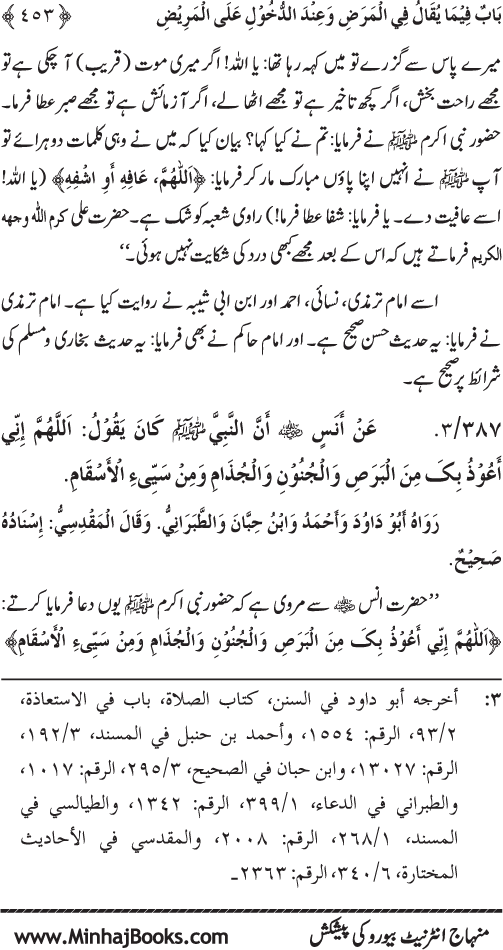 بَابٌ فِيْمَا يُقَالُ فِي الْمَرَضِ وَعِنْدَ الدُّخُوْلِ عَلَى الْمَرِيْضِ ﴿۴۵۳﴾
میرے پاس سے گزرے تو میں کہہ رہا تھا: یا اللہ! اگر میری موت (قریب) آ چکی ہے تو
مجھے راحت بخش، اگر کچھ تاخیر ہے تو مجھے اٹھا لے، اگر آزمائش ہے تو مجھے صبر عطا فرما۔
حضور نبی اکرم ﷺ نے فرمایا: تم نے کیا کہا؟ بیان کیا کہ میں نے وہی کلمات دوہرائے تو
آپ ﷺ نے انہیں اپنا پاؤں مبارک مار کر فرمایا: ﴿اَللّٰهُمَّ، عَافِهِ أَوِ اشْفِهِ﴾ (یا اللہ!
اسے عافیت دے۔ یا فرمایا: شفا عطا فرما!) راوی شعبہ کو شک ہے۔ حضرت علی کرم اللہ وجهه
الکریم فرماتے ہیں کہ اس کے بعد مجھے کبھی درد کی شکایت نہیں ہوئی۔‘‘
اسے امام ترمذی، نسائی، احمد اور ابن ابی شیبہ نے روایت کیا ہے۔ امام ترمذی
نے فرمایا: یہ حدیث حسن صحیح ہے۔ اور امام حاکم نے بھی فرمایا: یہ حدیث بخاری و مسلم کی
شرائط پر صحیح ہے۔
۳/۳۸۷. عَنْ أَنَسٍ رضی اللہ عنہ أَنَّ النَّبِيَّ ﷺ كَانَ يَقُوْلُ: اَللّٰهُمَّ إِنِّي
أَعُوْذُ بِکَ مِنَ الْبَرَصِ وَالْجُنُوْنِ وَالْجُذَامِ وَمِنْ سَيِّیءِ الْأَسْقَامِ.
رَوَاهُ أَبُوْ دَاوُدَ وَأَحْمَدُ وَابْنُ حِبَّانَ وَالطَّبَرَانِيُّ. وَقَالَ الْمَقْدِسِيُّ: إِسْنَادُهُ
صَحِيْحٌ.
’’حضرت انس رضی اللہ عنہ سے مروی ہے کہ حضور نبی اکرم ﷺ یوں دعا فرمایا کرتے:
﴿اَللّٰهُمَّ إِنِّي أَعُوْذُ بِکَ مِنَ الْبَرَصِ وَالْجُنُوْنِ وَالْجُذَامِ وَمِنْ سَيِّیءِ الْأَسْقَامِ﴾
۳: أخرجه أبو داود في السنن، كتاب الصلاة، باب في الاستعاذة،
۲/۹۳، الرقم: ۱۵۵۴، وأحمد بن حنبل في المسند، ۳/۱۹۲،
الرقم: ۱۳۰۲۷، وابن حبان في الصحيح، ۳/۲۹۵، الرقم: ۱۰۱۷،
والطبراني في الدعاء، ۱/۳۹۹، الرقم: ۱۳۴۲، والطيالسي في
المسند، ۱/۲۶۸، الرقم: ۲۰۰۸، والمقدسي في الأحاديث
المختارة، ۶/۳۴۰، الرقم: ۲۳۶۳۔
منہاج انٹرنیٹ بیورو کی پیشکش www.MinhajBooks.com